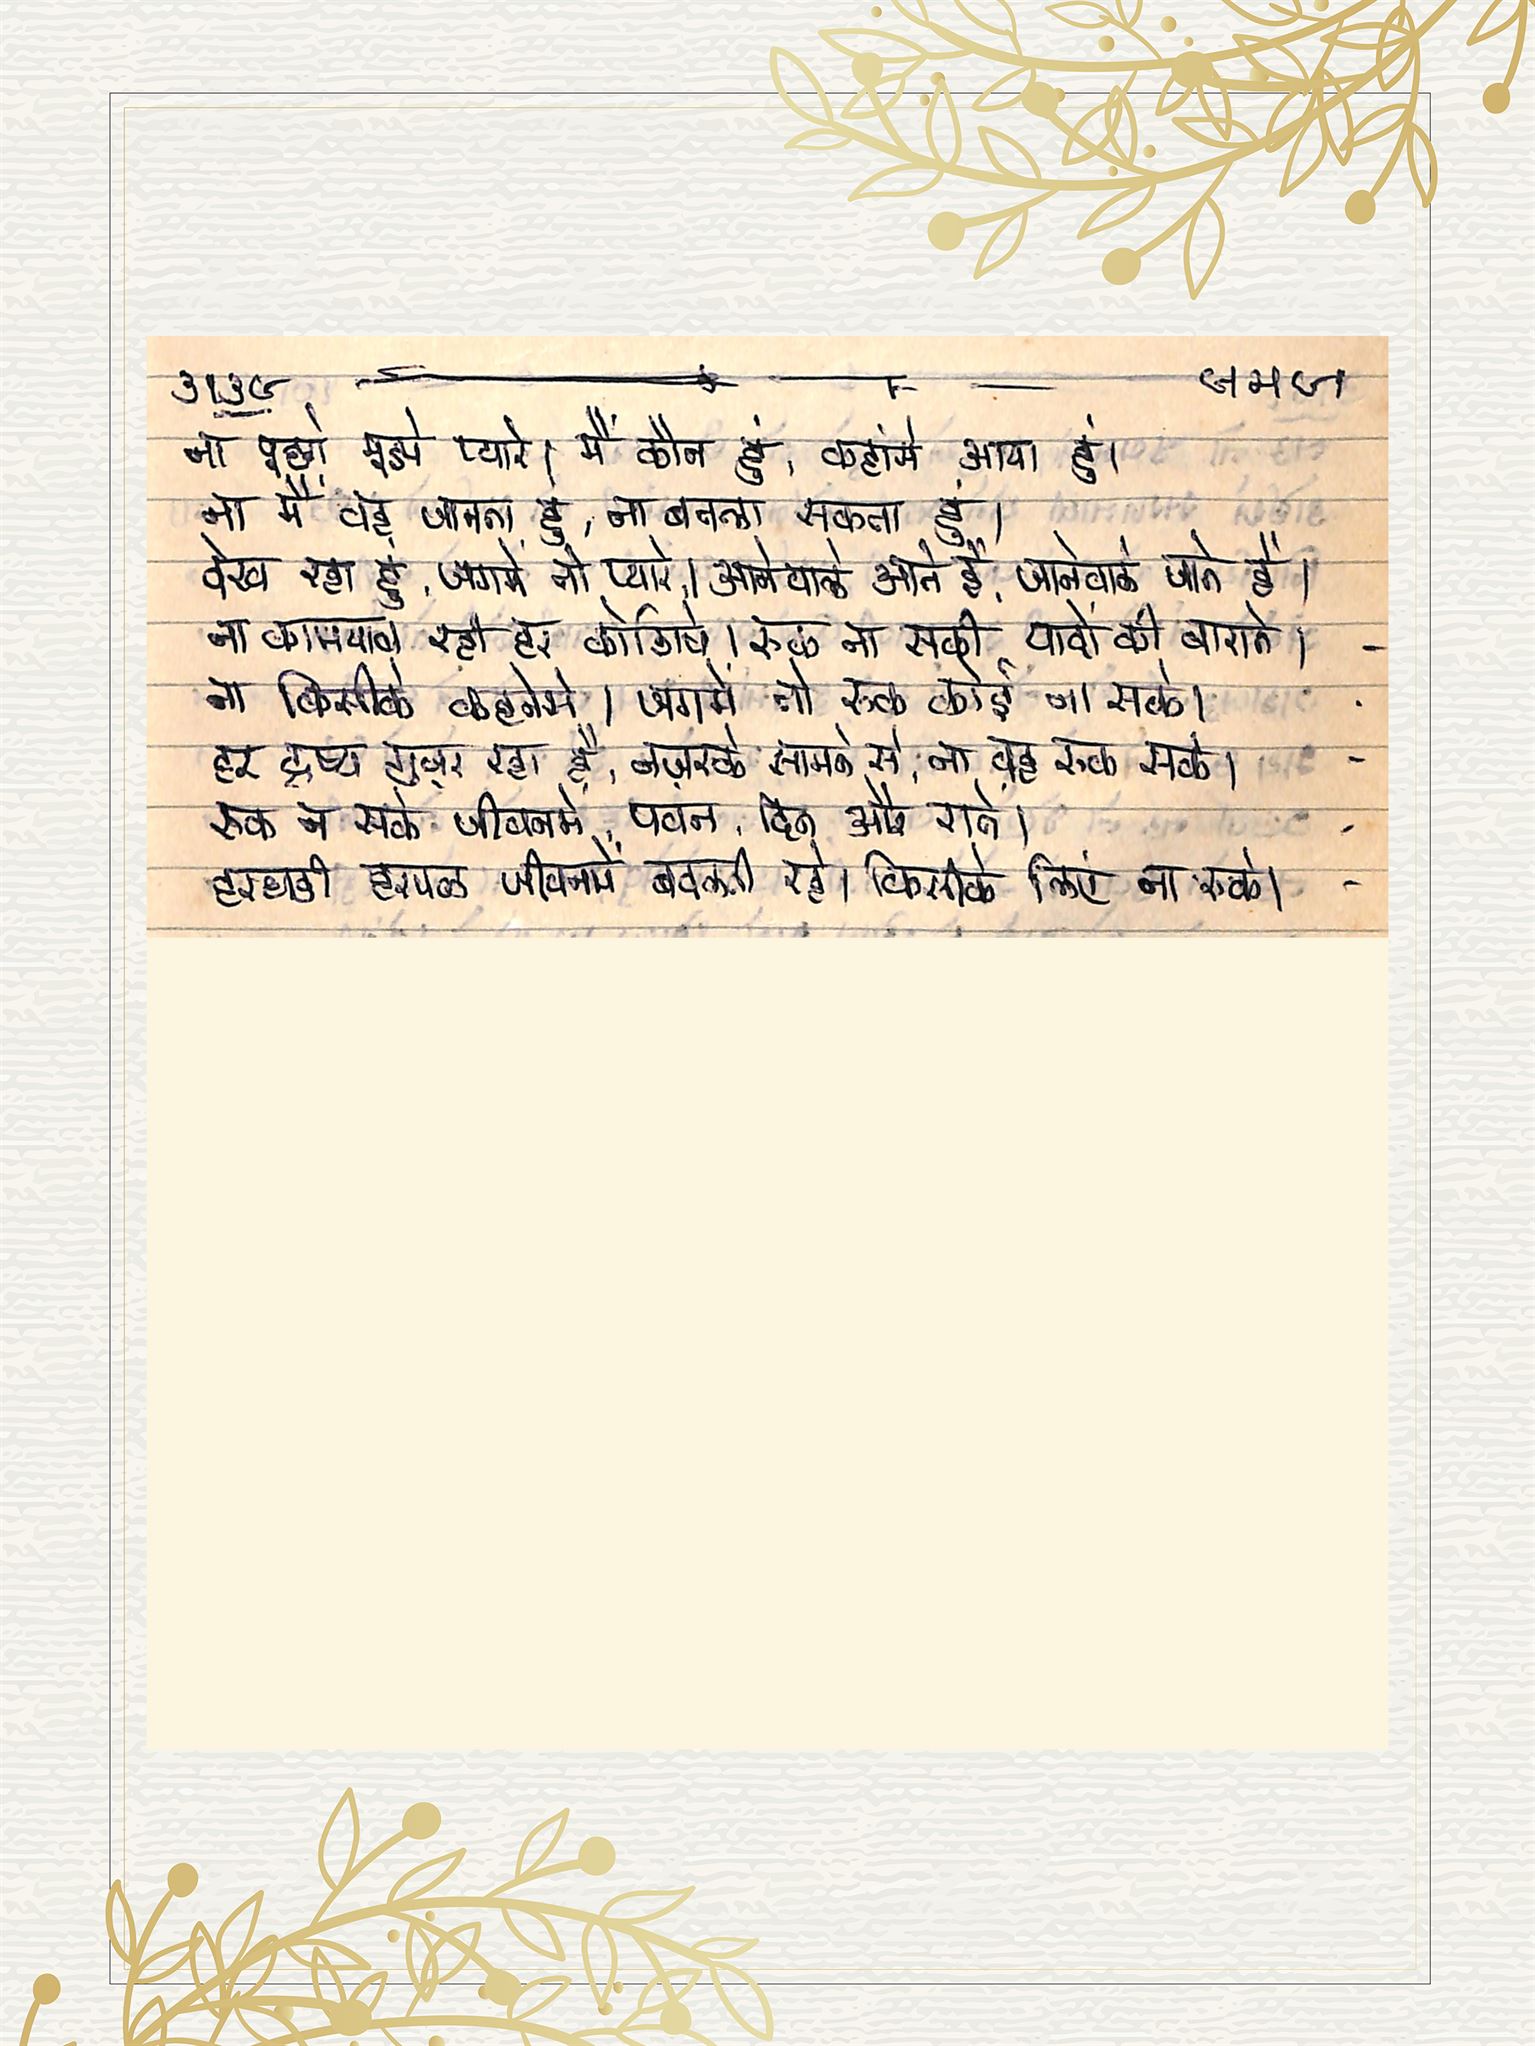 ना पूछो मूझसे प्यारे। मैं कौन हुं, कहांसे आया हुं।
ना मैं वह जानता हुं, ना बतला सकता हुं।
देख रहा हुं, जगमें तो प्यारे। आनेवाले आते हैं, जानेवाले जाते हैं।
ना कामयाब रही हर कोशिषे। रुक ना सकी यादों की बाराते।
ना किसीके कहनेसे। जगमें तो रुक कोई ना सके।
हर द्रष्य गुज़र रहा है, नज़रके सामने से, ना वह रुक सके।
रुक न सके जीवनमें, पवन, दिन और राते।
हरघडी हरपल जीवनमें बदलती रहे। किसीके लिएं ना रुके।